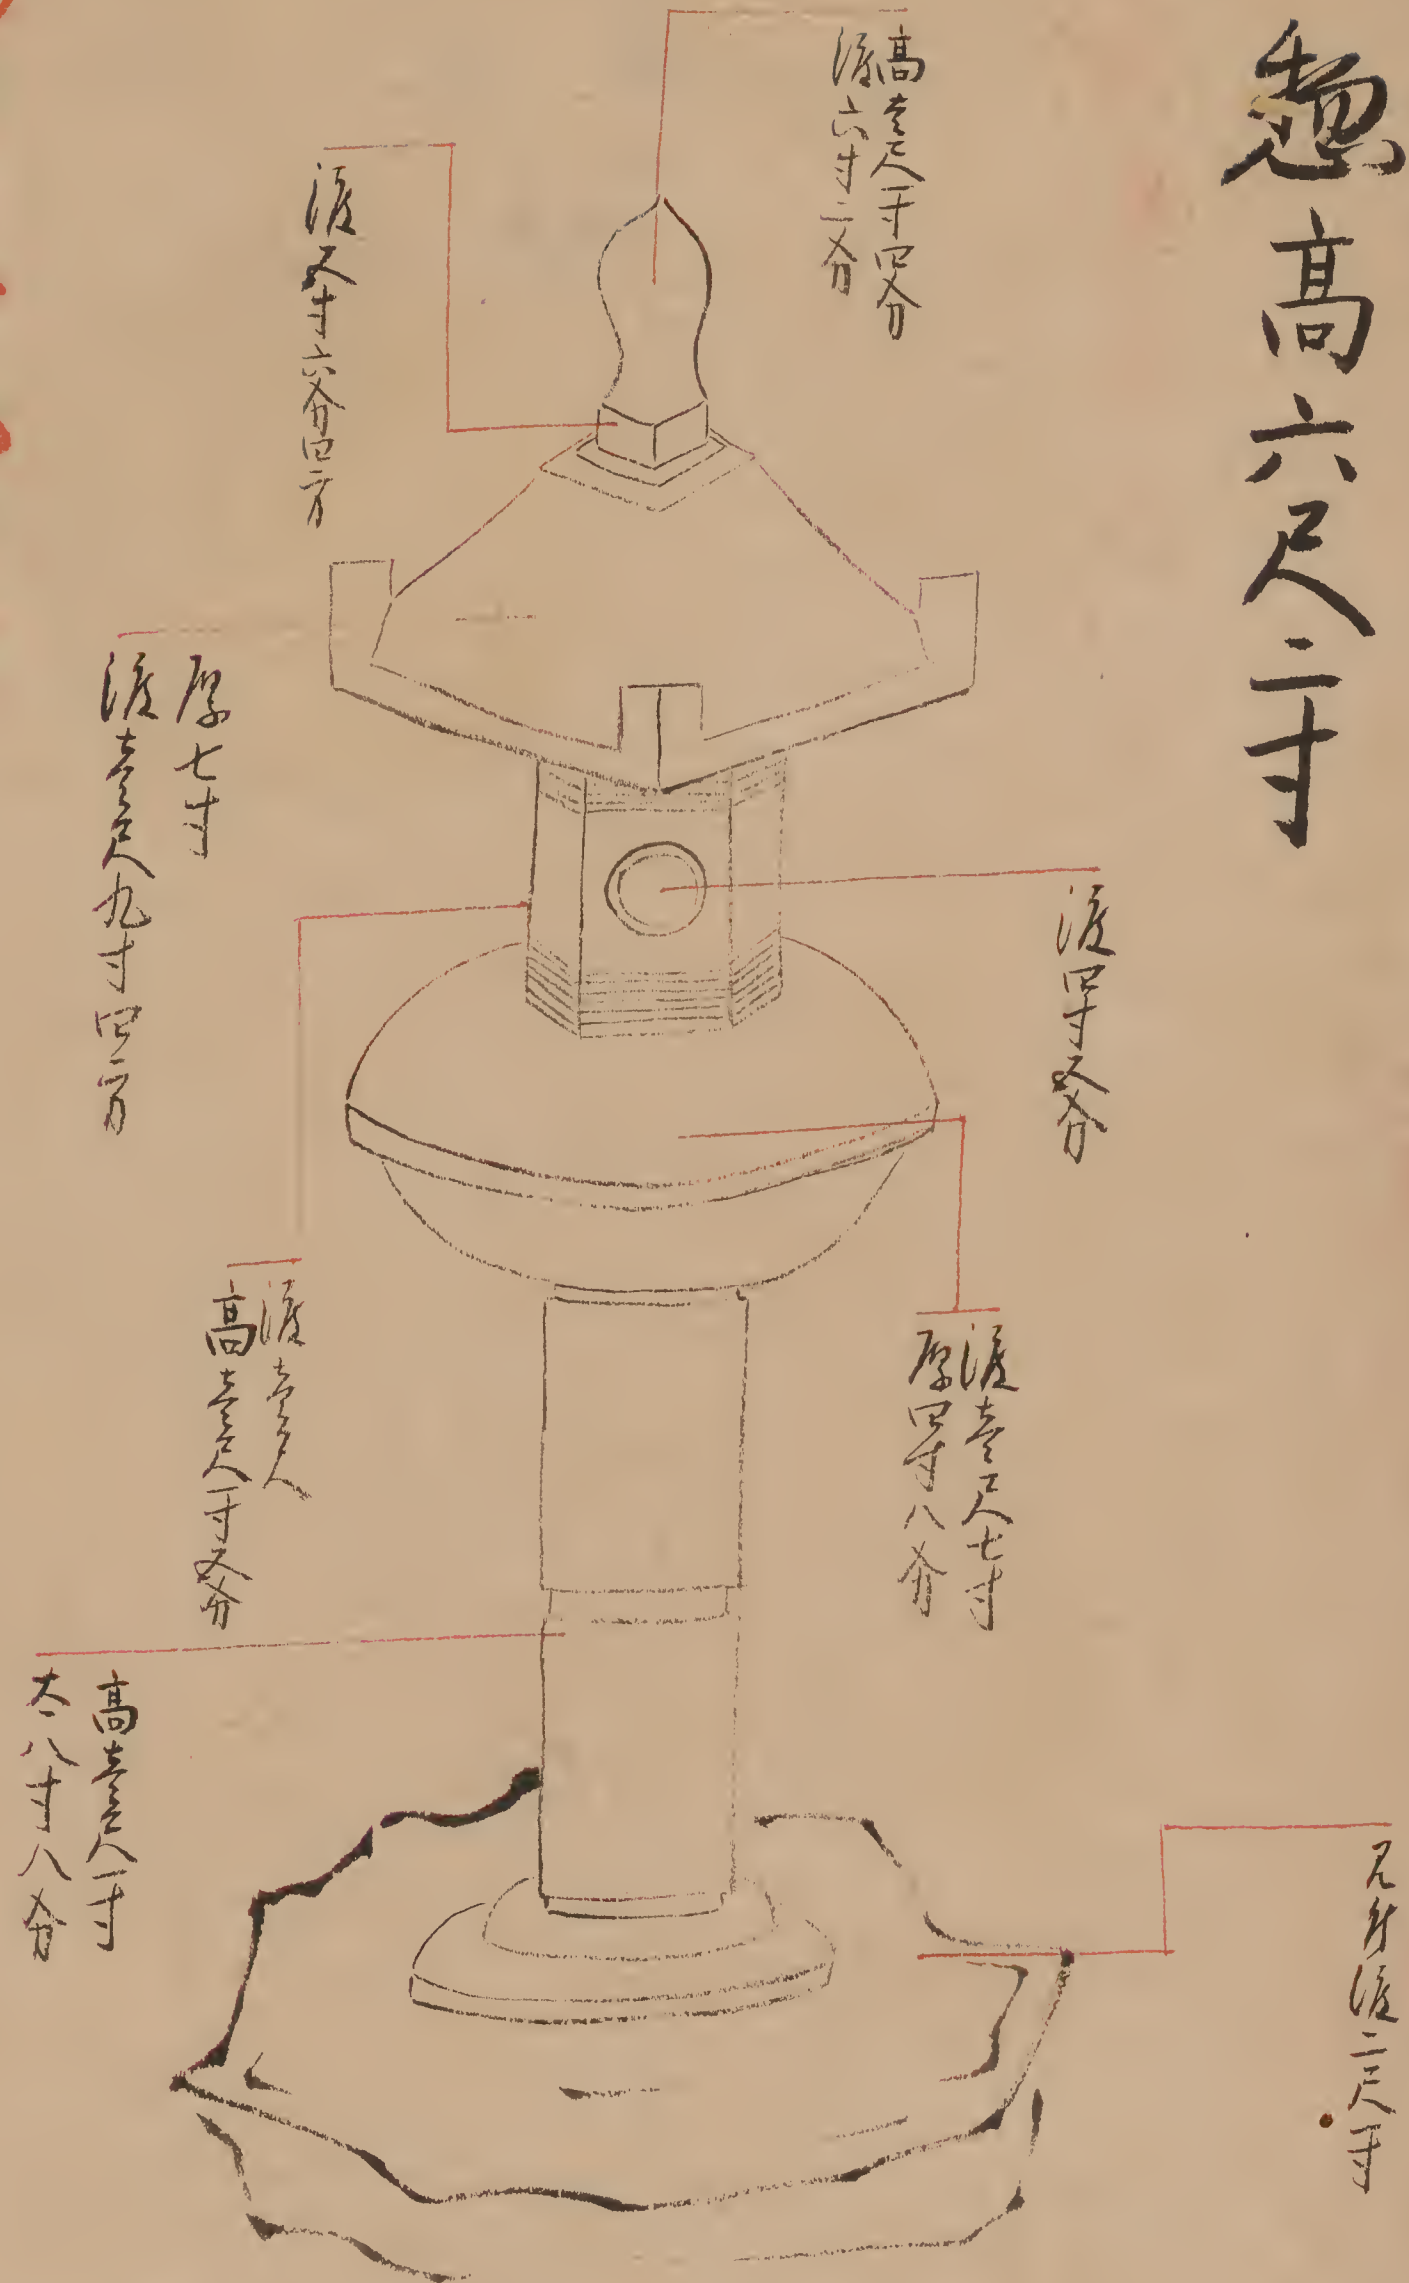 惣高六尺二寸
高壱尺一寸四分
渡六寸二分
渡五寸六分四方
厚七寸
渡壱尺九寸四方
渡四寸五分
渡壱尺
高壱尺一寸五分
渡壱尺七寸
厚四寸八分
高壱尺一寸
太サ八寸八分
渡二尺一寸